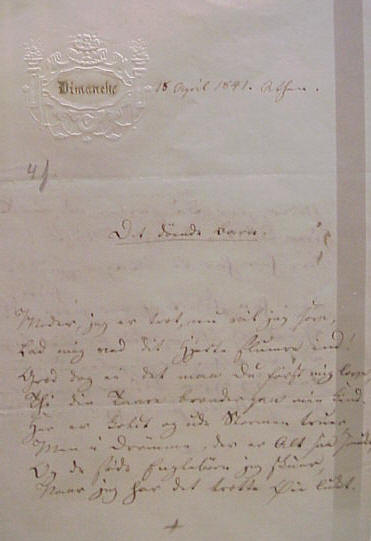 Dimanche
18 April 1841. Athen.
4
Det døende Barn.
Moder, jeg er træt, nu vil jeg sove,
Lad mig ved dit Hjerte slumre ind!
Græd dog ei, det maa Du først mig love,
Thi din Taare brænder paa min Kind.
Her er koldt og ude Stormen truer,
Men i Drømme, der er Alt saa smukt,
Og de søde Englebørn jeg skuer,
Naar jeg har det trætte Øie lukt.